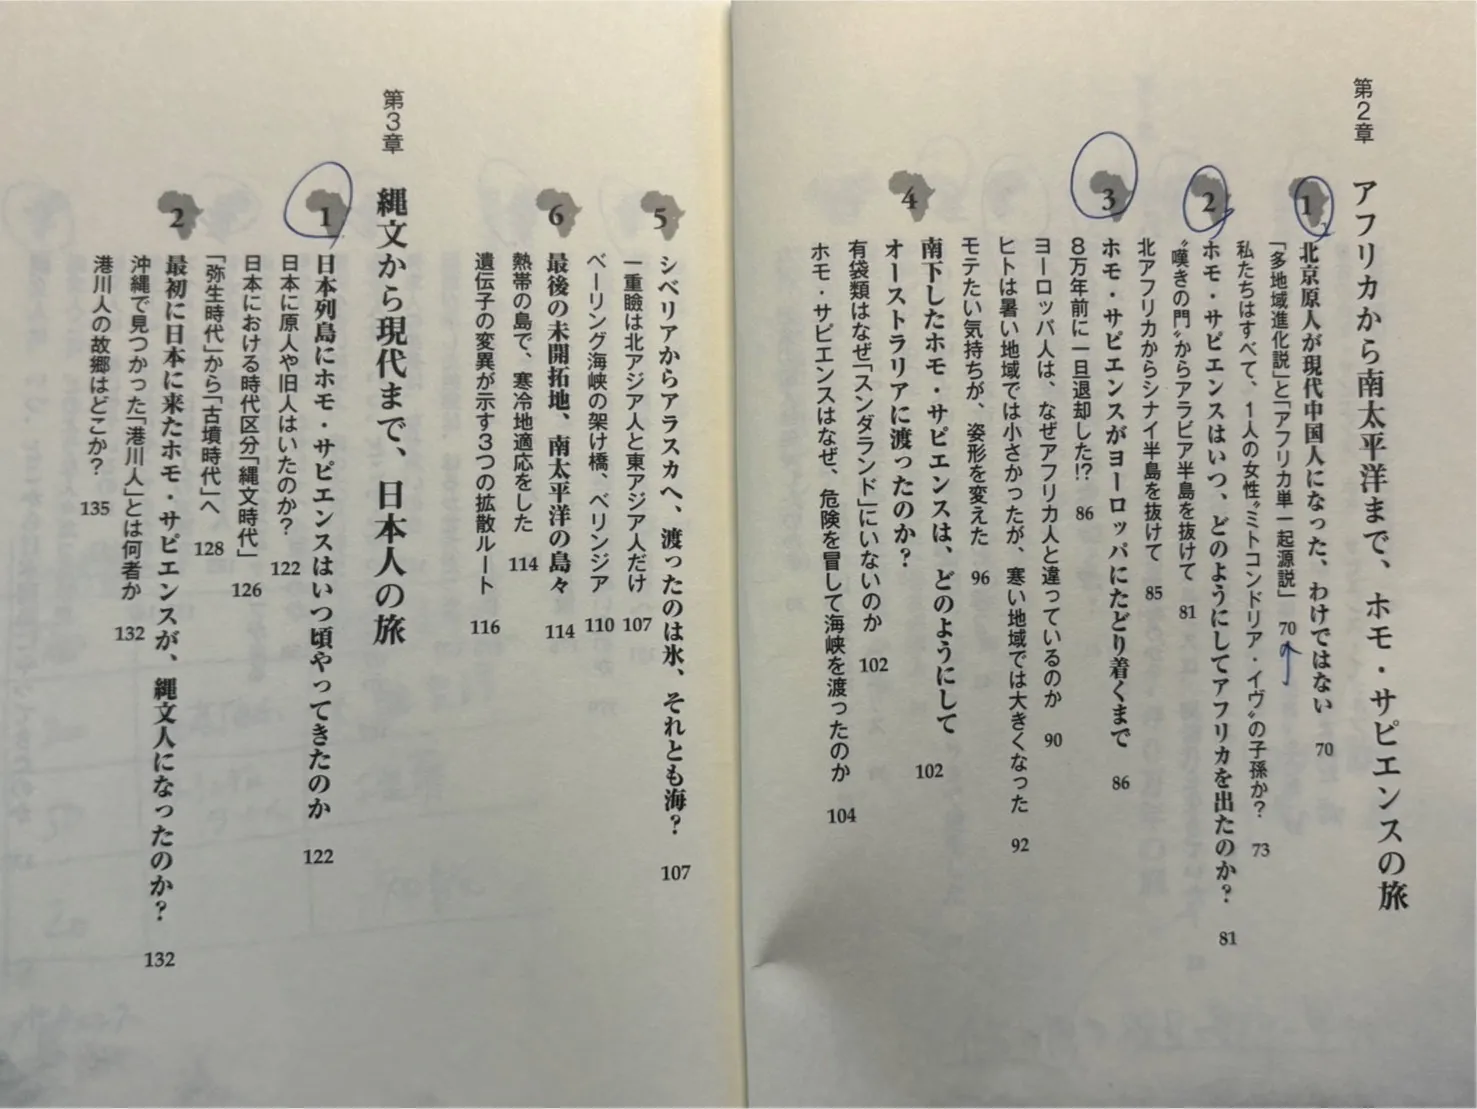 第2章 アフリカから南太平洋まで、ホモ・サピエンスの旅
1 北京原人が現代中国人になった、わけではない 70
「多地域進化説」と「アフリカ単一起源説」 70
私たちはすべて、1人の女性〝ミトコンドリア・イヴ〟の子孫か? 73
2 ホモ・サピエンスはいつ、どのようにしてアフリカを出たのか? 81
〝嘆きの門〟からアラビア半島を抜けて 81
北アフリカからシナイ半島を抜けて 85
3 ホモ・サピエンスがヨーロッパにたどり着くまで 86
8万年前に一旦退却した!? 86
ヨーロッパ人は、なぜアフリカ人と違っているのか 90
ヒトは暑い地域では小さかったが、寒い地域では大きくなった 92
モテたい気持ちが、姿形を変えた 96
4 南下したホモ・サピエンスは、どのようにして
オーストラリアに渡ったのか? 102
有袋類はなぜ「スンダランド」にいないのか 102
ホモ・サピエンスはなぜ、危険を冒して海峡を渡ったのか 104
5 シベリアからアラスカへ、渡ったのは氷、それとも海? 107
一重瞼は北アジア人と東アジア人だけ 107
ベーリング海峡の架け橋、ベリンジア 110
6 最後の未開拓地、南太平洋の島々 114
熱帯の島で、寒冷地適応をした 114
遺伝子の変異が示す3つの拡散ルート 116
第3章 縄文から現代まで、日本人の旅
1 日本列島にホモ・サピエンスはいつ頃やってきたのか 122
日本に原人や旧人はいたのか? 122
日本における時代区分「縄文時代」 126
「弥生時代」から「古墳時代」へ 128
2 最初に日本に来たホモ・サピエンスが、縄文人になったのか? 132
沖縄で見つかった「港川人」とは何者か 132
港川人の故郷はどこか? 135